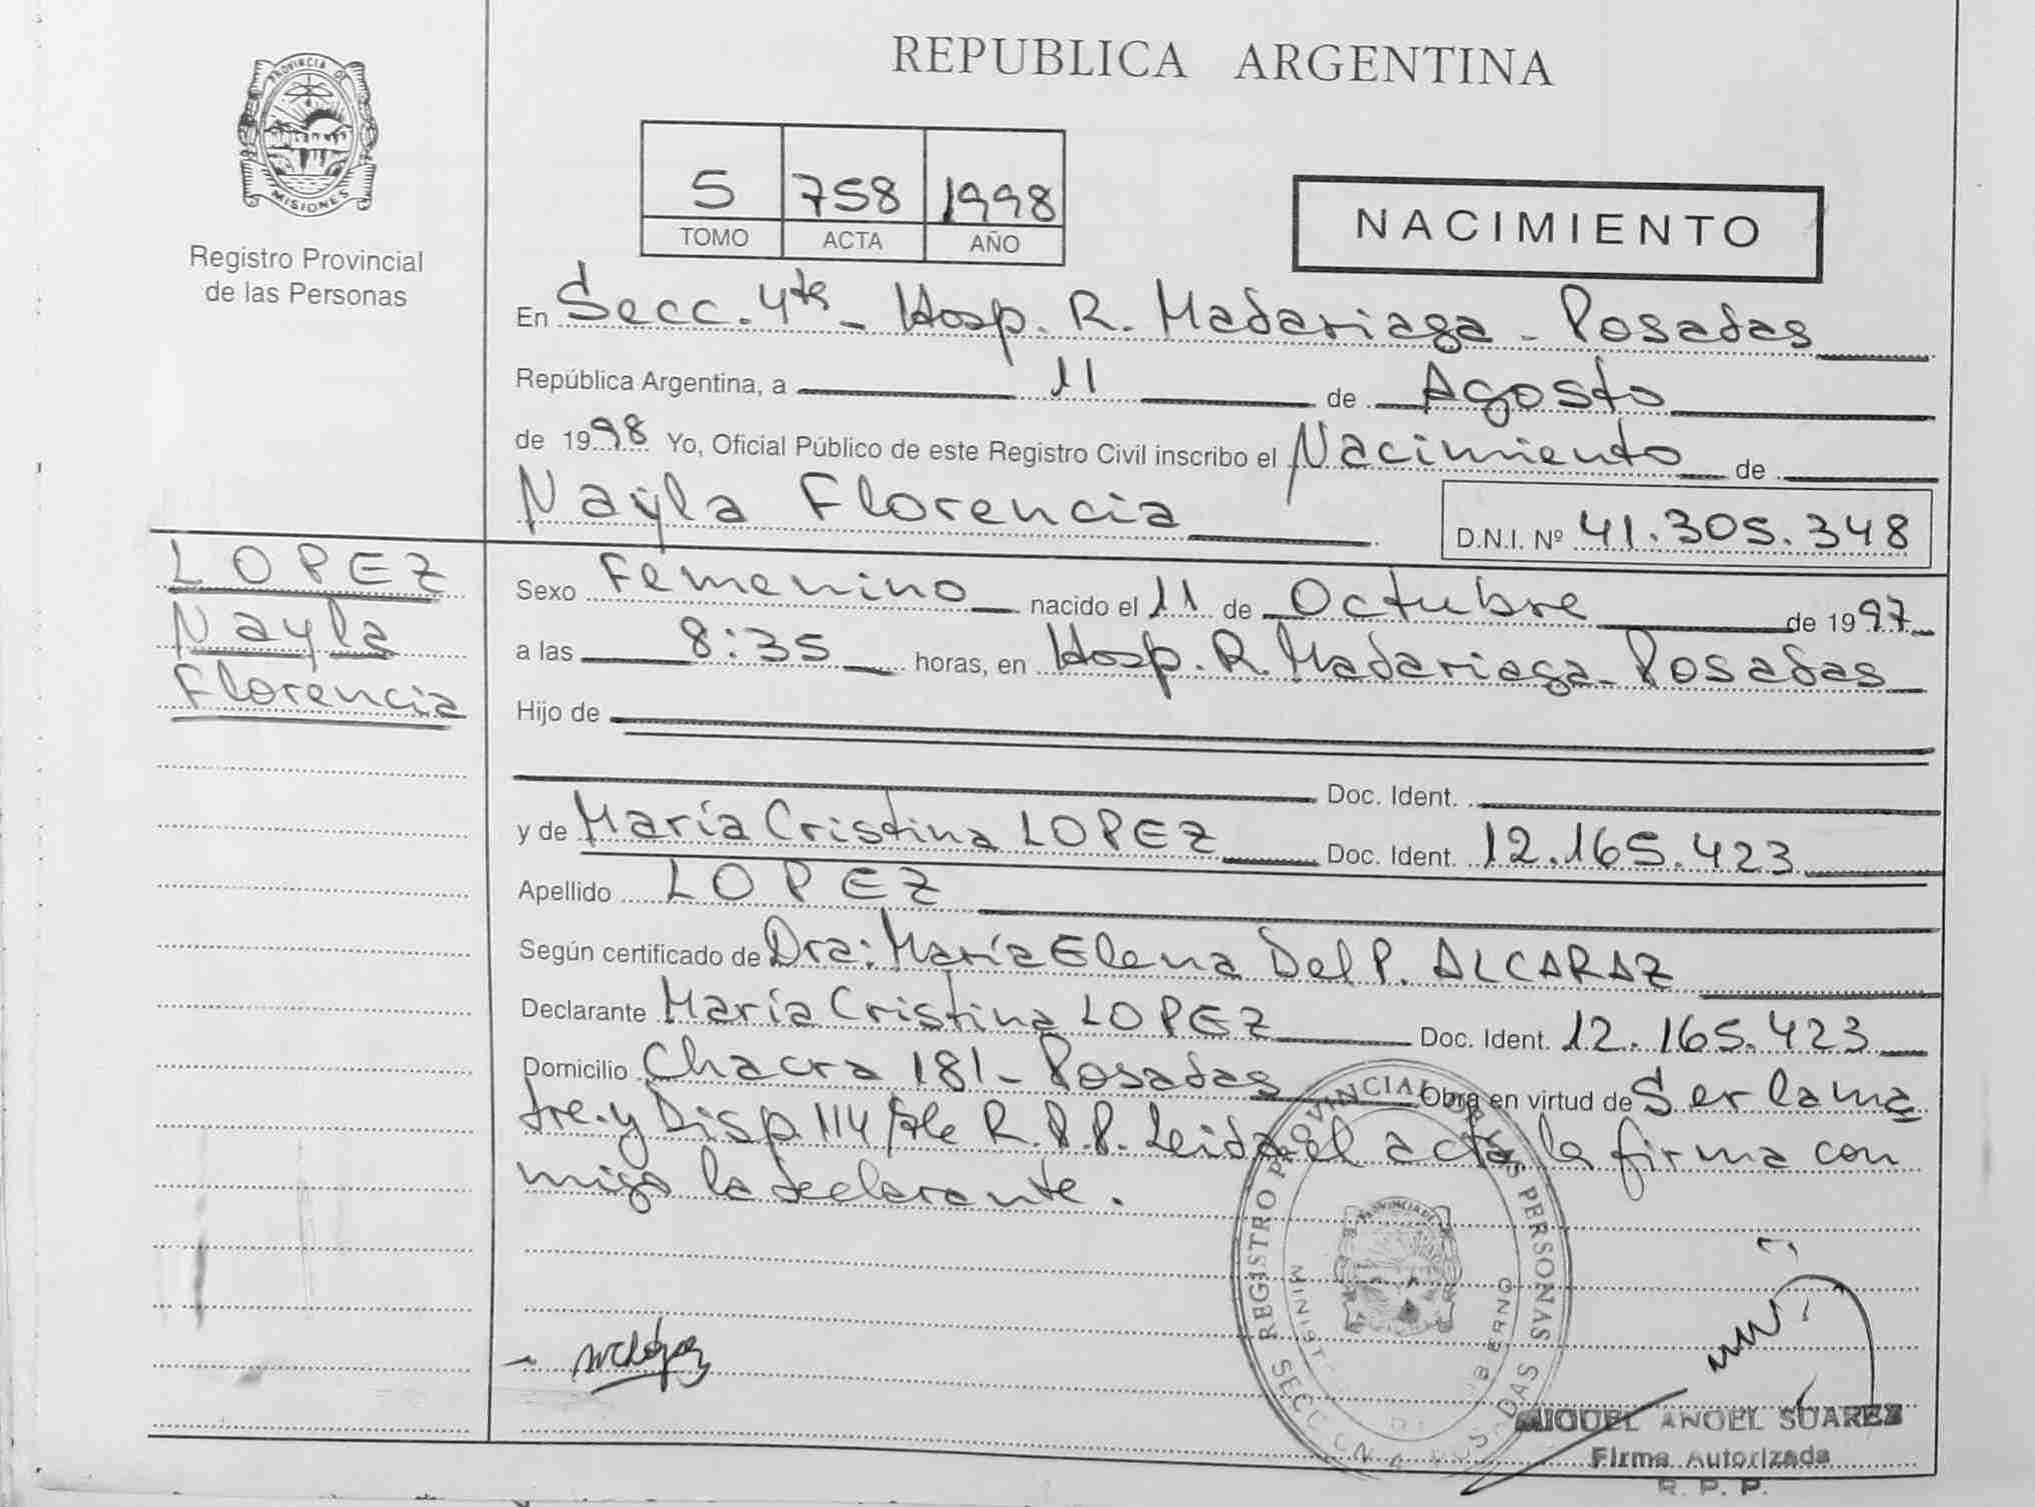 REPUBLICA ARGENTINA
PROVINCIA DE
MISIONES
Registro Provincial
de las Personas
5 758 1998
TOMO ACTA AÑO
NACIMIENTO
En Secc. 4ta - Hosp. R. Madariaga - Posadas
República Argentina, a 11 de Agosto
de 1998 Yo, Oficial Público de este Registro Civil inscribo el Nacimiento de
Nayla Florencia D.N.I. Nº 41.305.348
LOPEZ
Nayla
Florencia
Sexo Femenino nacido el 11 de Octubre de 1997
a las 8:35 horas, en Hosp. R. Madariaga - Posadas
Hijo de
Doc. Ident.
y de María Cristina LOPEZ Doc. Ident. 12.165.423
Apellido LOPEZ
Según certificado de Dra: María Elena Del P. ALCARAZ
Declarante María Cristina LOPEZ Doc. Ident. 12.165.423
Domicilio Chacra 181 - Posadas Obra en virtud de Ser la ma
dre y Disp. 114 R.P.P. Leida el acta, la firma con
migo la declarante.
REGISTRO PROVINCIAL DE LAS PERSONAS
MIGUEL ANGEL SUAREZ
Firma Autorizada
R. P. P.